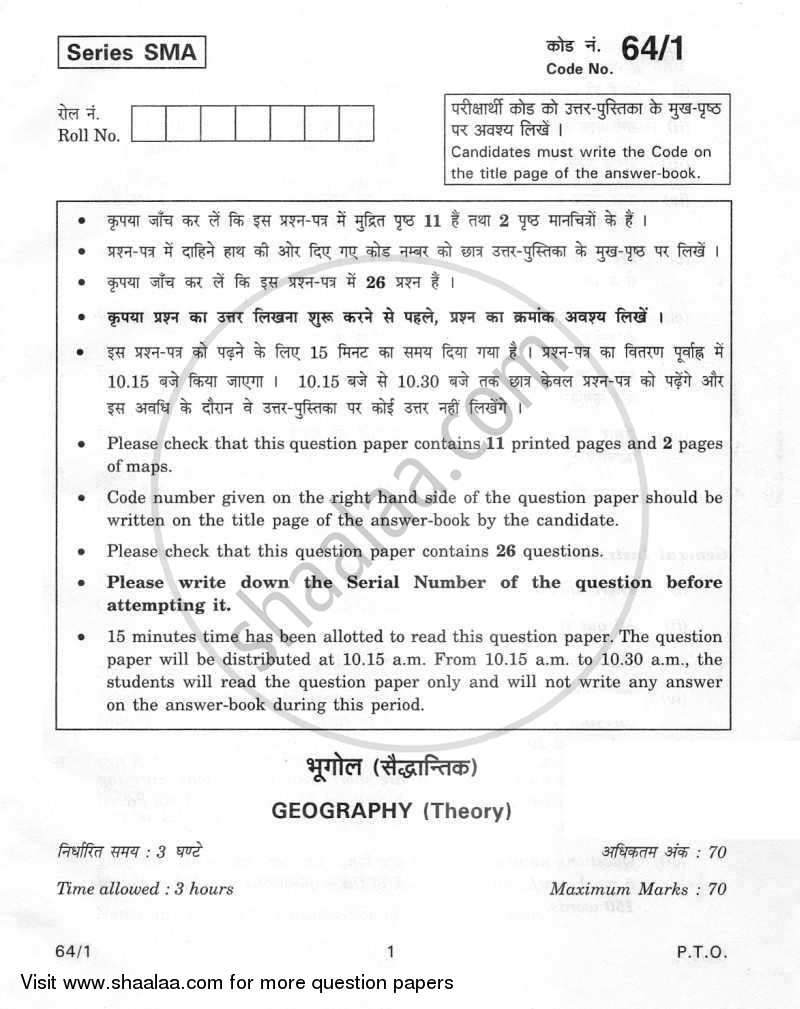 Series SMA
कोड नं. 64/1
Code No.
रोल नं.
Roll No.
परीक्षार्थी कोड को उत्तर-पुस्तिका के मुख-पृष्ठ
पर अवश्य लिखें ।
Candidates must write the Code on
the title page of the answer-book.
• कृपया जाँच कर लें कि इस प्रश्न-पत्र में मुद्रित पृष्ठ 11 हैं तथा 2 पृष्ठ मानचित्रों के हैं ।
• प्रश्न-पत्र में दाहिने हाथ की ओर दिए गए कोड नम्बर को छात्र उत्तर-पुस्तिका के मुख-पृष्ठ पर लिखें ।
• कृपया जाँच कर लें कि इस प्रश्न-पत्र में 26 प्रश्न हैं ।
• कृपया प्रश्न का उत्तर लिखना शुरू करने से पहले, प्रश्न का क्रमांक अवश्य लिखें ।
• इस प्रश्न-पत्र को पढ़ने के लिए 15 मिनट का समय दिया गया है । प्रश्न-पत्र का वितरण पूर्वाह्न में
10.15 बजे किया जाएगा । 10.15 बजे से 10.30 बजे तक छात्र केवल प्रश्न-पत्र को पढ़ेंगे और
इस अवधि के दौरान वे उत्तर-पुस्तिका पर कोई उत्तर नहीं लिखेंगे ।
• Please check that this question paper contains 11 printed pages and 2 pages
of maps.
• Code number given on the right hand side of the question paper should be
written on the title page of the answer-book by the candidate.
• Please check that this question paper contains 26 questions.
• Please write down the Serial Number of the question before
attempting it.
• 15 minutes time has been allotted to read this question paper. The question
paper will be distributed at 10.15 a.m. From 10.15 a.m. to 10.30 a.m., the
students will read the question paper only and will not write any answer
on the answer-book during this period.
shaalaa.com
भूगोल (सैद्धान्तिक)
GEOGRAPHY (Theory)
निर्धारित समय : 3 घण्टे
अधिकतम अंक : 70
Time allowed : 3 hours
Maximum Marks : 70
64/1
1
P.T.O.
Visit www.shaalaa.com for more question papers